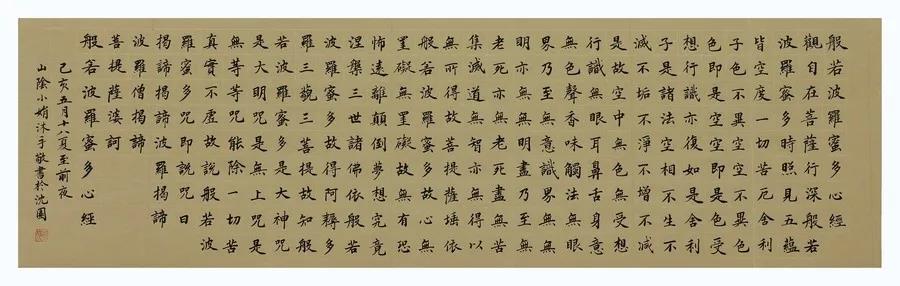 般若波羅蜜多心經
觀自在菩薩行深般若
波羅蜜多時照見五蘊
皆空度一切苦厄舍利
子色不異空空不異色
色即是空空即是色受
想行識亦復如是舍利
子是諸法空相不生不
滅不垢不淨不增不減
是故空中無色無受想
行識無眼耳鼻舌身意
無色聲香味觸法無眼
界乃至無意識界無無
明亦無無明盡乃至無
老死亦無老死盡無苦
集滅道無智亦無得以
無所得故菩提薩埵依
般若波羅蜜多故心無
罣礙無罣礙故無有恐
怖遠離顛倒夢想究竟
涅槃三世諸佛依般若
波羅蜜多故得阿耨多
羅三藐三菩提故知般
若波羅蜜多是大神咒
是大明咒是無上咒是
無等等咒能除一切苦
真實不虛故說般若波
羅蜜多咒即說咒曰
揭諦揭諦波羅揭諦
波羅僧揭諦
菩提薩婆訶
般若波羅蜜多心經
己亥五月十八夏至前夜
山陰小娟沐手敬書於沈園